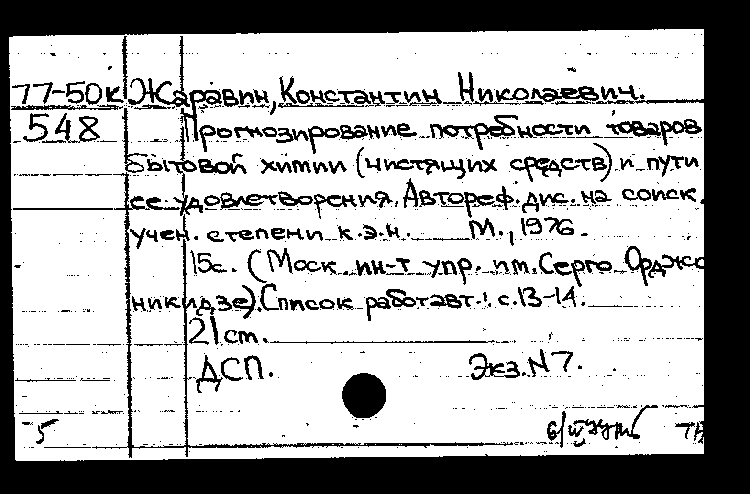 77-50к Жаравин, Константин Николаевич.
548 Прогнозирование потребности товаров
бытовой химии (чистящих средств) и пути
ее удовлетворения. Автореф. дис. на соиск.
учен. степени к.э.н. М., 1976.
15с. (Моск. ин-т упр. им. Серго Орджо
никидзе). Список работ авт.: с.13-14.
21 см.
ДСП. Экз. N 7.
5